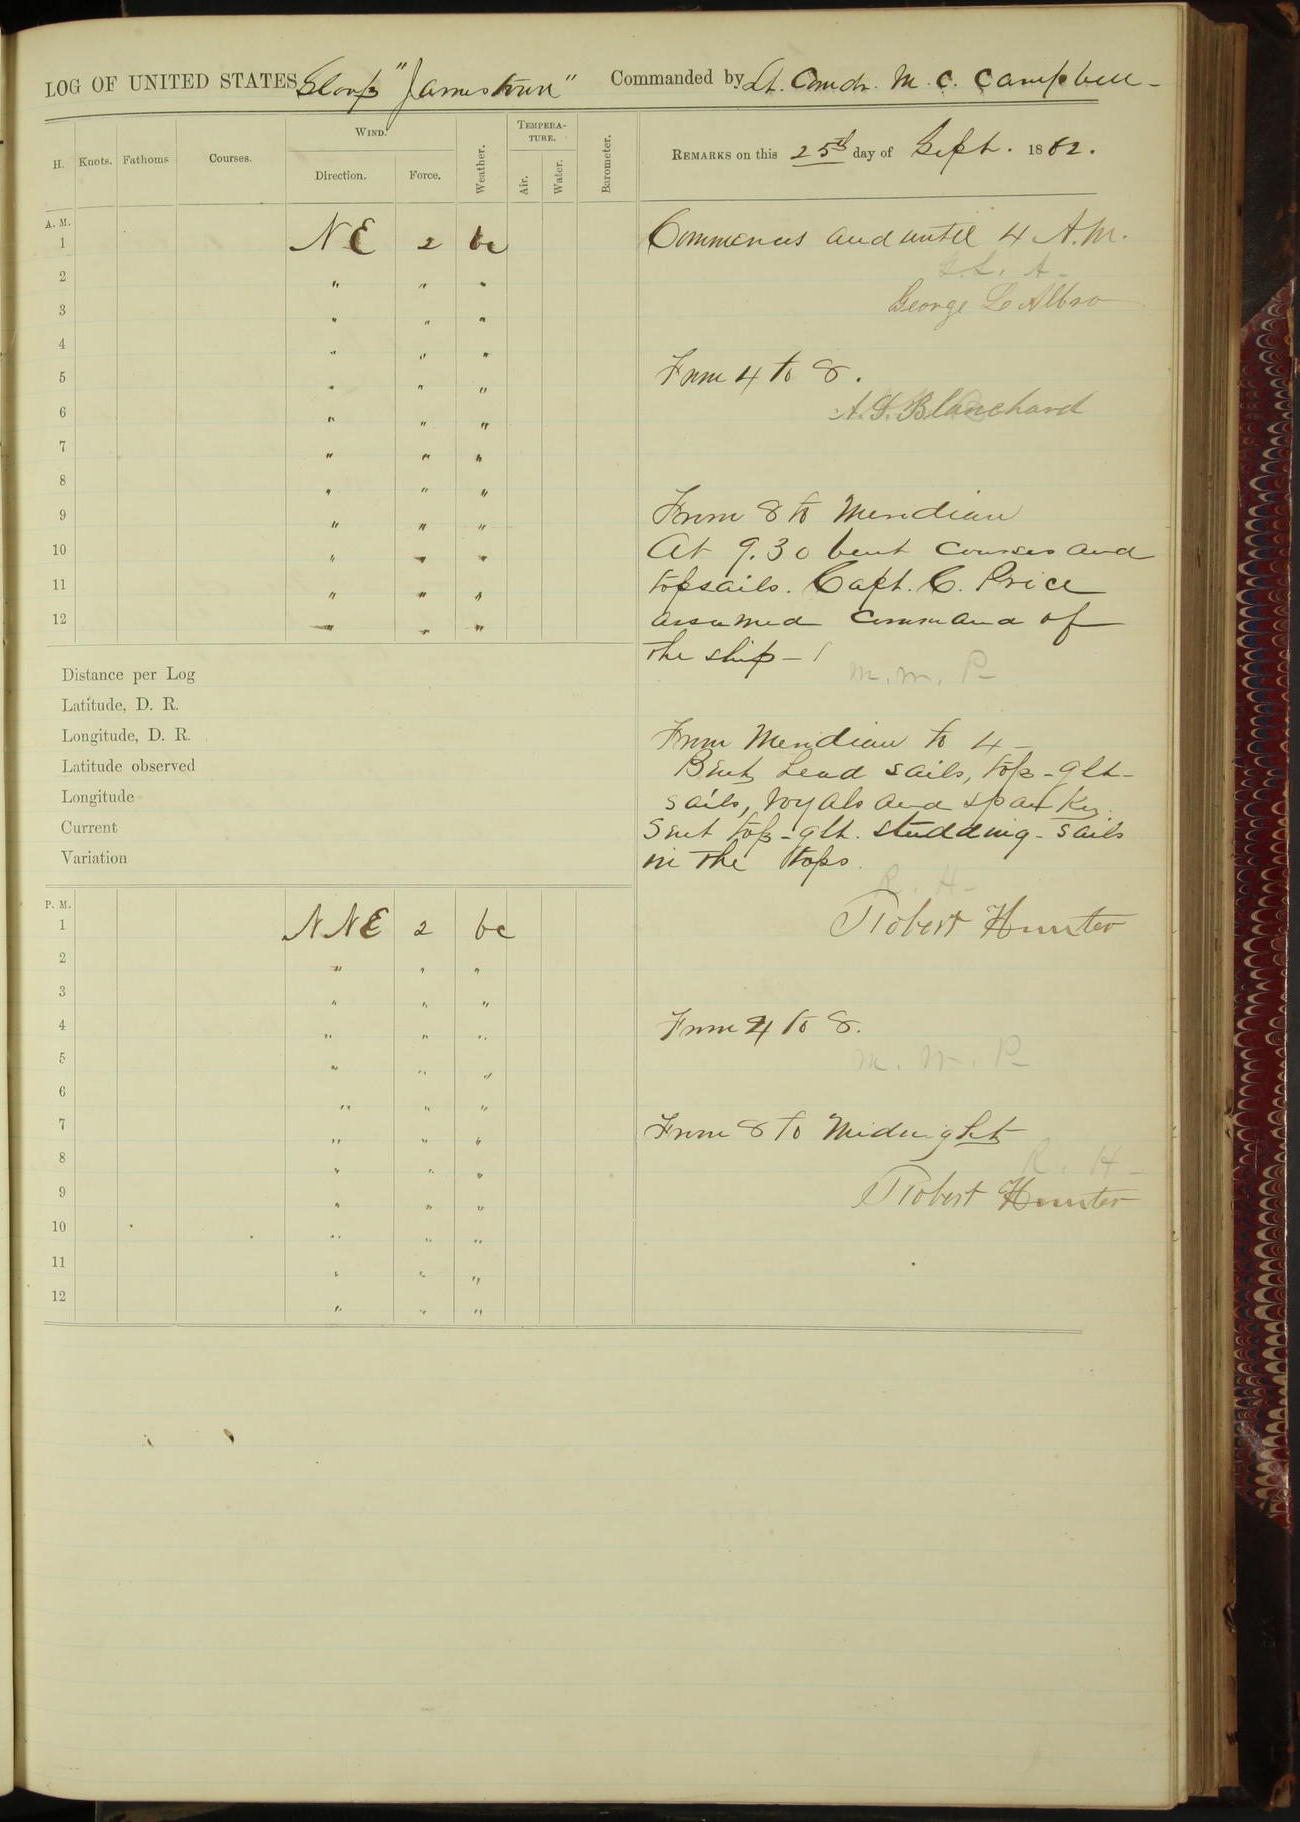 LOG OF UNITED STATES Sloop "Jamestown" Commanded by Lt. Comdr. M. C. Campbell -
H. Knots. Fathoms Courses. WIND. Direction. Force. Weather. TEMPERATURE. Air. Water. Barometer. REMARKS on this 25th day of Sept. 1882.
A. M.
1 NE 2 bc
2 " " "
3 " " "
4 " " "
5 " " "
6 " " "
7 " " "
8 " " "
9 " " "
10 " " "
11 " " "
12 " " "
Distance per Log
Latitude, D. R.
Longitude, D. R.
Latitude observed
Longitude
Current
Variation
P. M.
1 NNE 2 bc
2 " " "
3 " " "
4 " " "
5 " " "
6 " " "
7 " " "
8 " " "
9 " " "
10 " " "
11 " " "
12 " " "
Commences and until 4 A.M.
George L Albro
From 4 to 8.
A. S. Blanchard
From 8 to Meridian
At 9.30 bent courses and
topsails. Capt. C. Price
assumed command of
the ship -
M. W. P-
From Meridian to 4 -
Bent head sails, top-glt-
sails, royals and spanker.
Sent top-glt. studding-sails
in the tops.
R. H-
Robert Hunter
From 4 to 8.
M. W. P-
From 8 to Midnight
R. H-
Robert Hunter